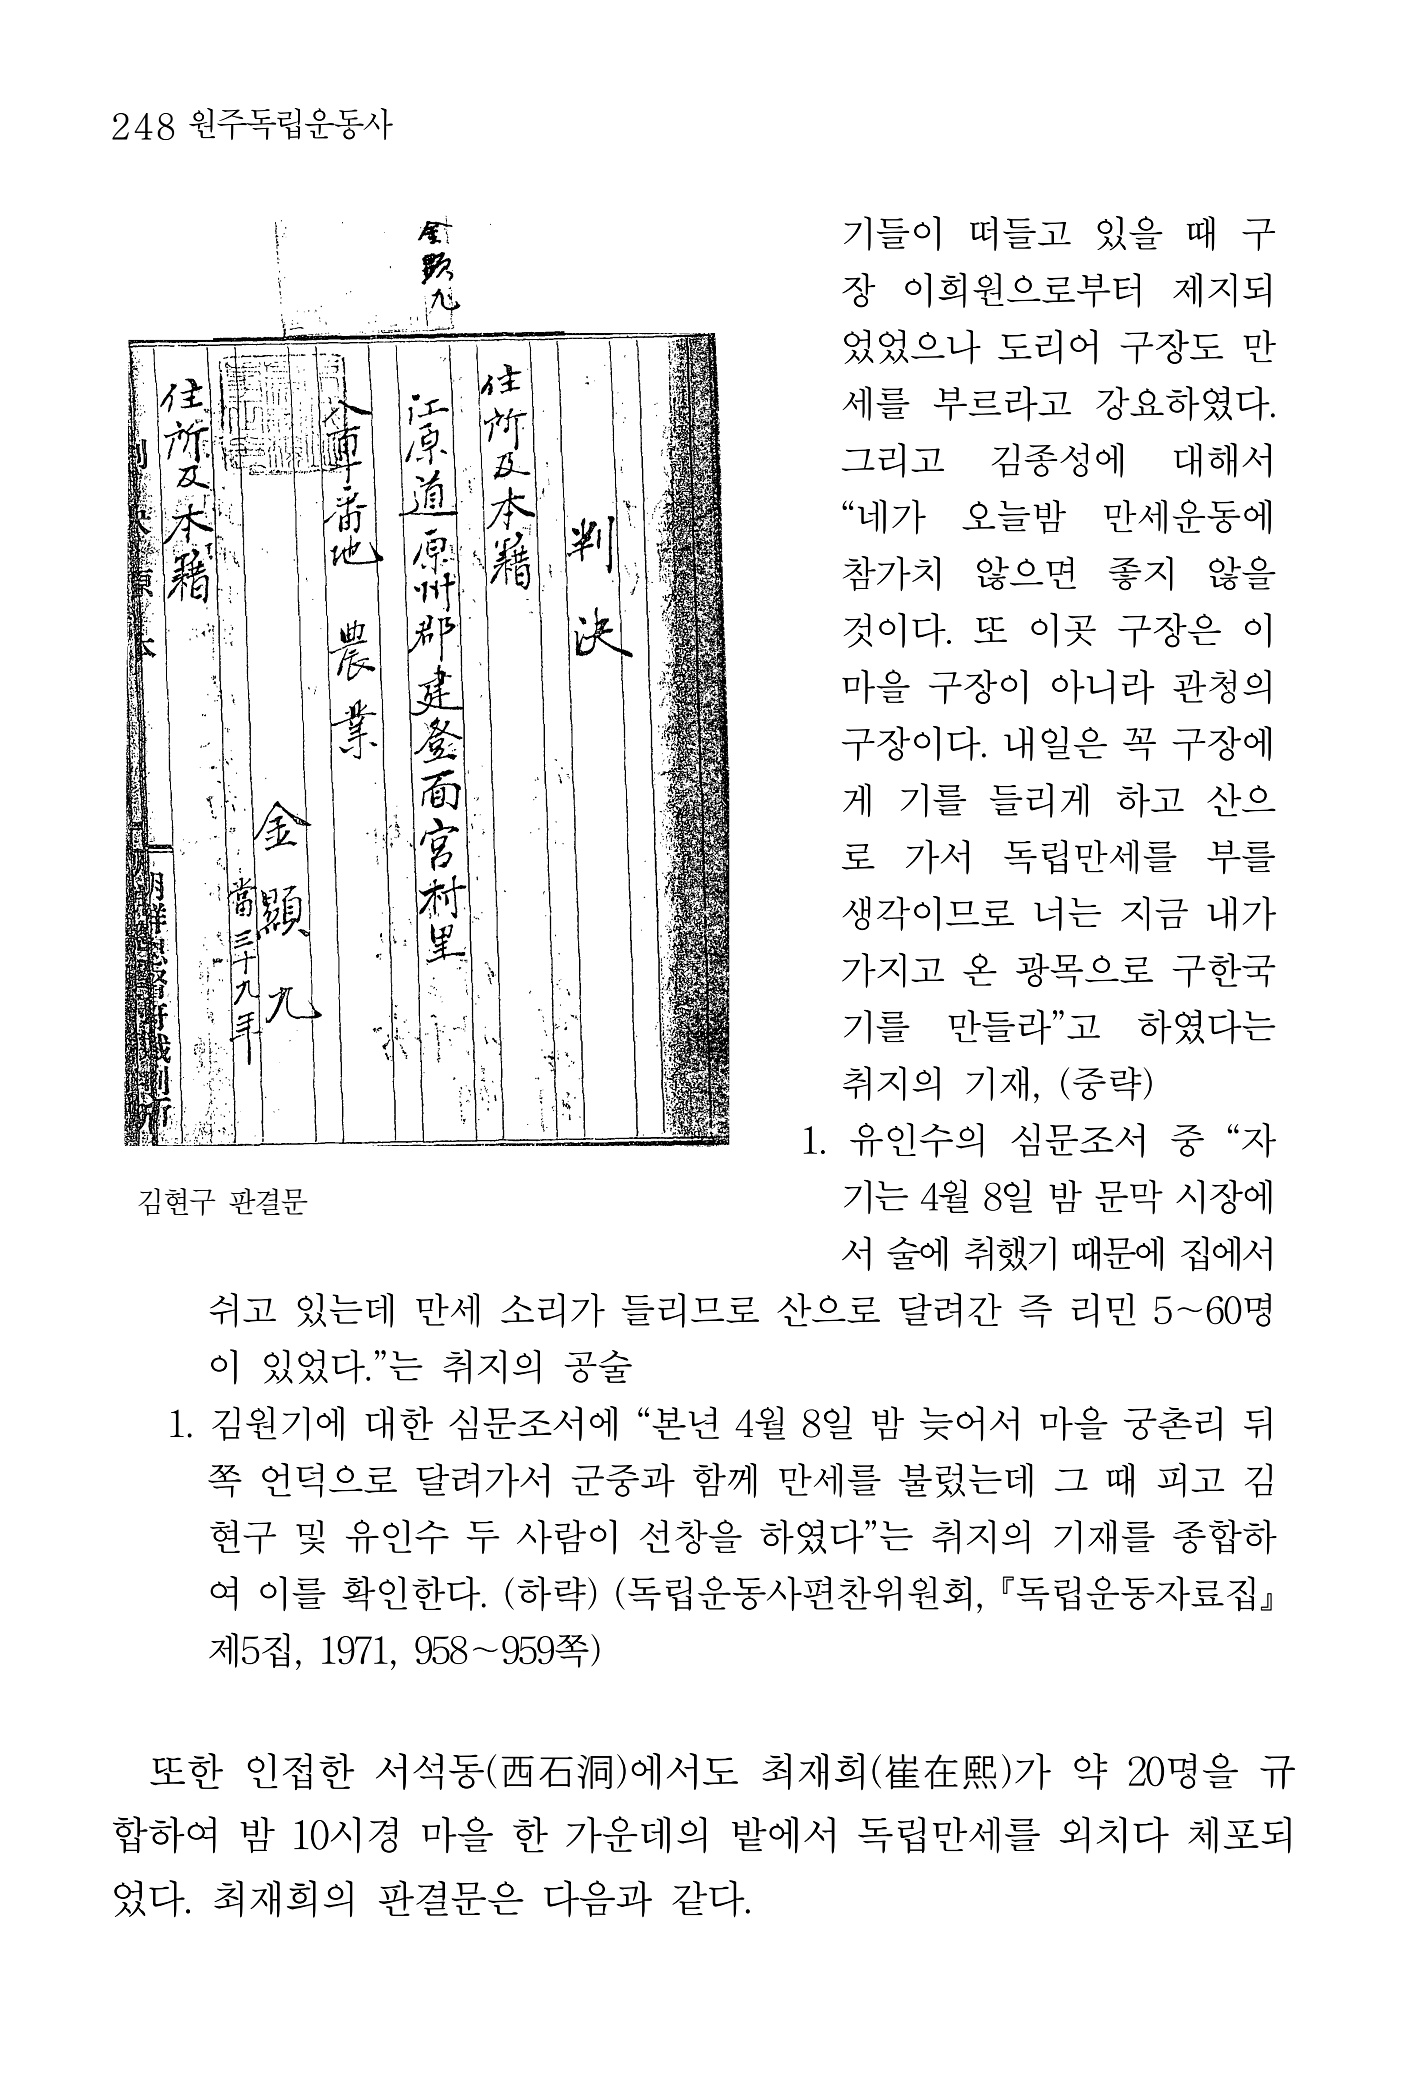 248 원주독립운동사
金顯九
判決
住所及本籍
江原道原州郡建登面宮村里
番地 農業
金顯九
當三十九年
住所及本籍
김현구 판결문
기들이 떠들고 있을 때 구
장 이희원으로부터 제지되
었었으나 도리어 구장도 만
세를 부르라고 강요하였다.
그리고 김종성에 대해서
“네가 오늘밤 만세운동에
참가치 않으면 좋지 않을
것이다. 또 이곳 구장은 이
마을 구장이 아니라 관청의
구장이다. 내일은 꼭 구장에
게 기를 들리게 하고 산으
로 가서 독립만세를 부를
생각이므로 너는 지금 내가
가지고 온 광목으로 구한국
기를 만들라”고 하였다는
취지의 기재, (중략)
1. 유인수의 심문조서 중 “자
기는 4월 8일 밤 문막 시장에
서 술에 취했기 때문에 집에서
쉬고 있는데 만세 소리가 들리므로 산으로 달려간 즉 리민 5～60명
이 있었다.”는 취지의 공술
1. 김원기에 대한 심문조서에 “본년 4월 8일 밤 늦어서 마을 궁촌리 뒤
쪽 언덕으로 달려가서 군중과 함께 만세를 불렀는데 그 때 피고 김
현구 및 유인수 두 사람이 선창을 하였다”는 취지의 기재를 종합하
여 이를 확인한다. (하략) (독립운동사편찬위원회, 『독립운동자료집』
제5집, 1971, 958～959쪽)
또한 인접한 서석동(西石洞)에서도 최재희(崔在熙)가 약 20명을 규
합하여 밤 10시경 마을 한 가운데의 밭에서 독립만세를 외치다 체포되
었다. 최재희의 판결문은 다음과 같다.